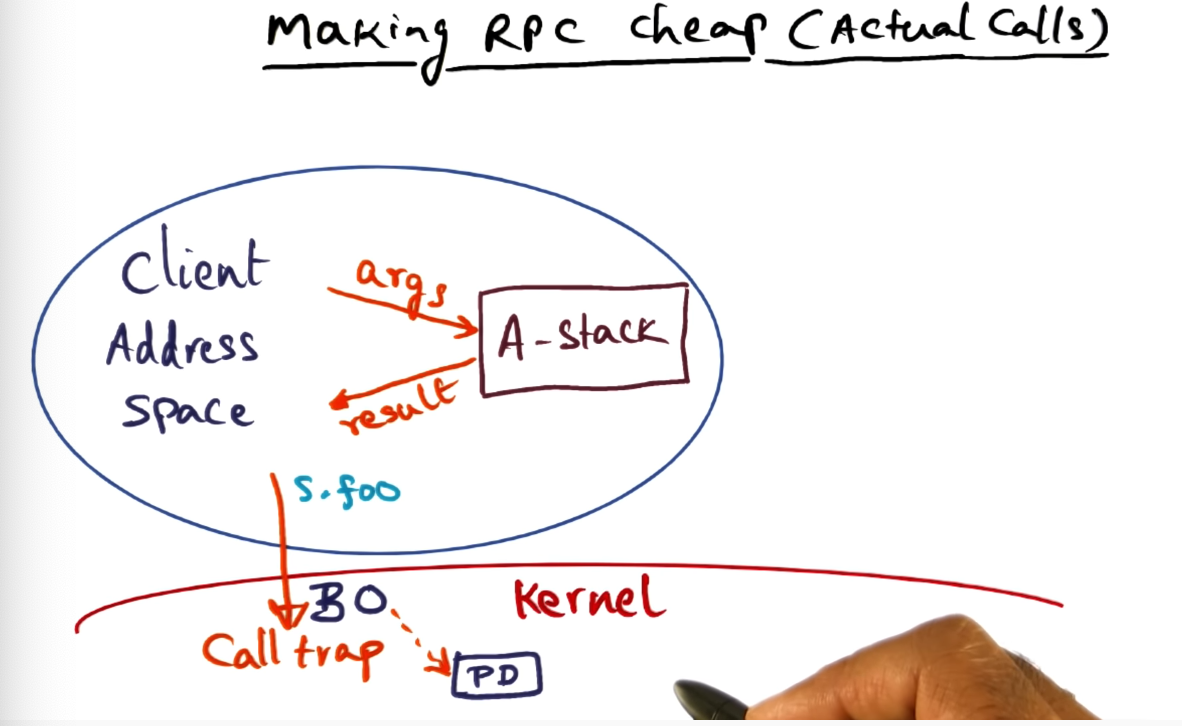 Making RPC cheap (Actual Calls)
Client
Address
Space
args
A-stack
result
S.foo
BO
Kernel
Call trap
PD